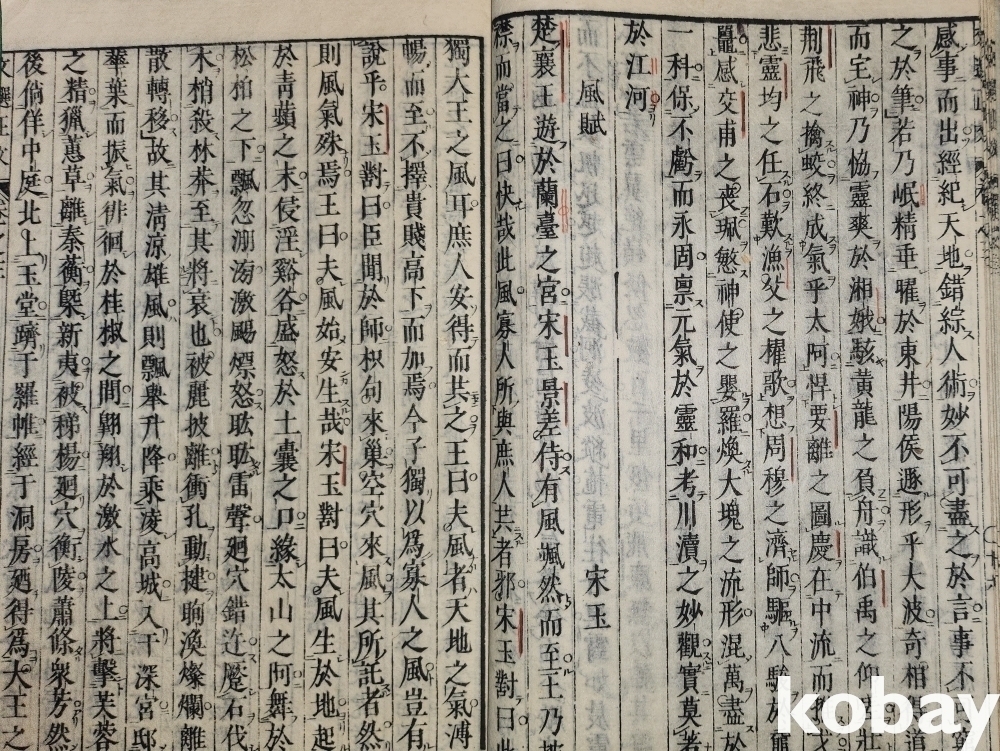 感事而出經紀天地錯綜人術妙不可盡之於言事不
之於筆若乃岷精垂曜於東井陽侯遯形乎大波奇相得道
而宅神乃恊靈爽於湘娥駭黃龍之負舟識伯禹之仰
荆飛之擒蛟終成氣乎太阿悍要離之圖慶在中流而推戈
悲靈均之任石歎漁父之櫂歌想周穆之濟師驅八駿於
鼉感交甫之喪珮愍神使之嬰羅煥大塊之流形混萬盡於
一科保不虧而永固禀元氣於靈和考川瀆之妙觀實莫若
於江河
風賦
宋玉
楚襄王遊於蘭臺之宮宋玉景差侍有風颯然而至王乃披
襟而當之曰快哉此風寡人所與庶人共者邪宋玉對曰此
獨大王之風耳庶人安得而共之王曰夫風者天地之氣溥
暢而至不擇貴賤高下而加焉今子獨以爲寡人之風豈有
說乎宋玉對曰臣聞於師枳句來巢空穴來風其所託者然
則風氣殊焉王曰夫風始安生哉宋玉對曰夫風生於地起
於靑蘋之末侵淫谿谷盛怒於土囊之口緣太山之阿舞於
松栢之下飄忽淜滂激颺熛怒耾耾雷聲廻穴錯迕蹷石伐
木梢殺林莽至其將衰也被麗披離衝孔動揵眴渙燦爛離
散轉移故其淸涼雄風則飄舉升降乘凌高城入于深宮邸
華葉而振氣徘徊於桂椒之間翺翔於激水之上將擊芙蓉
之精獵蕙草離秦蘅槩新夷被稊楊廻穴衝陵蕭條衆芳然
後倘佯中庭北上玉堂躋于羅帷經于洞房廼得爲大王之
kobay